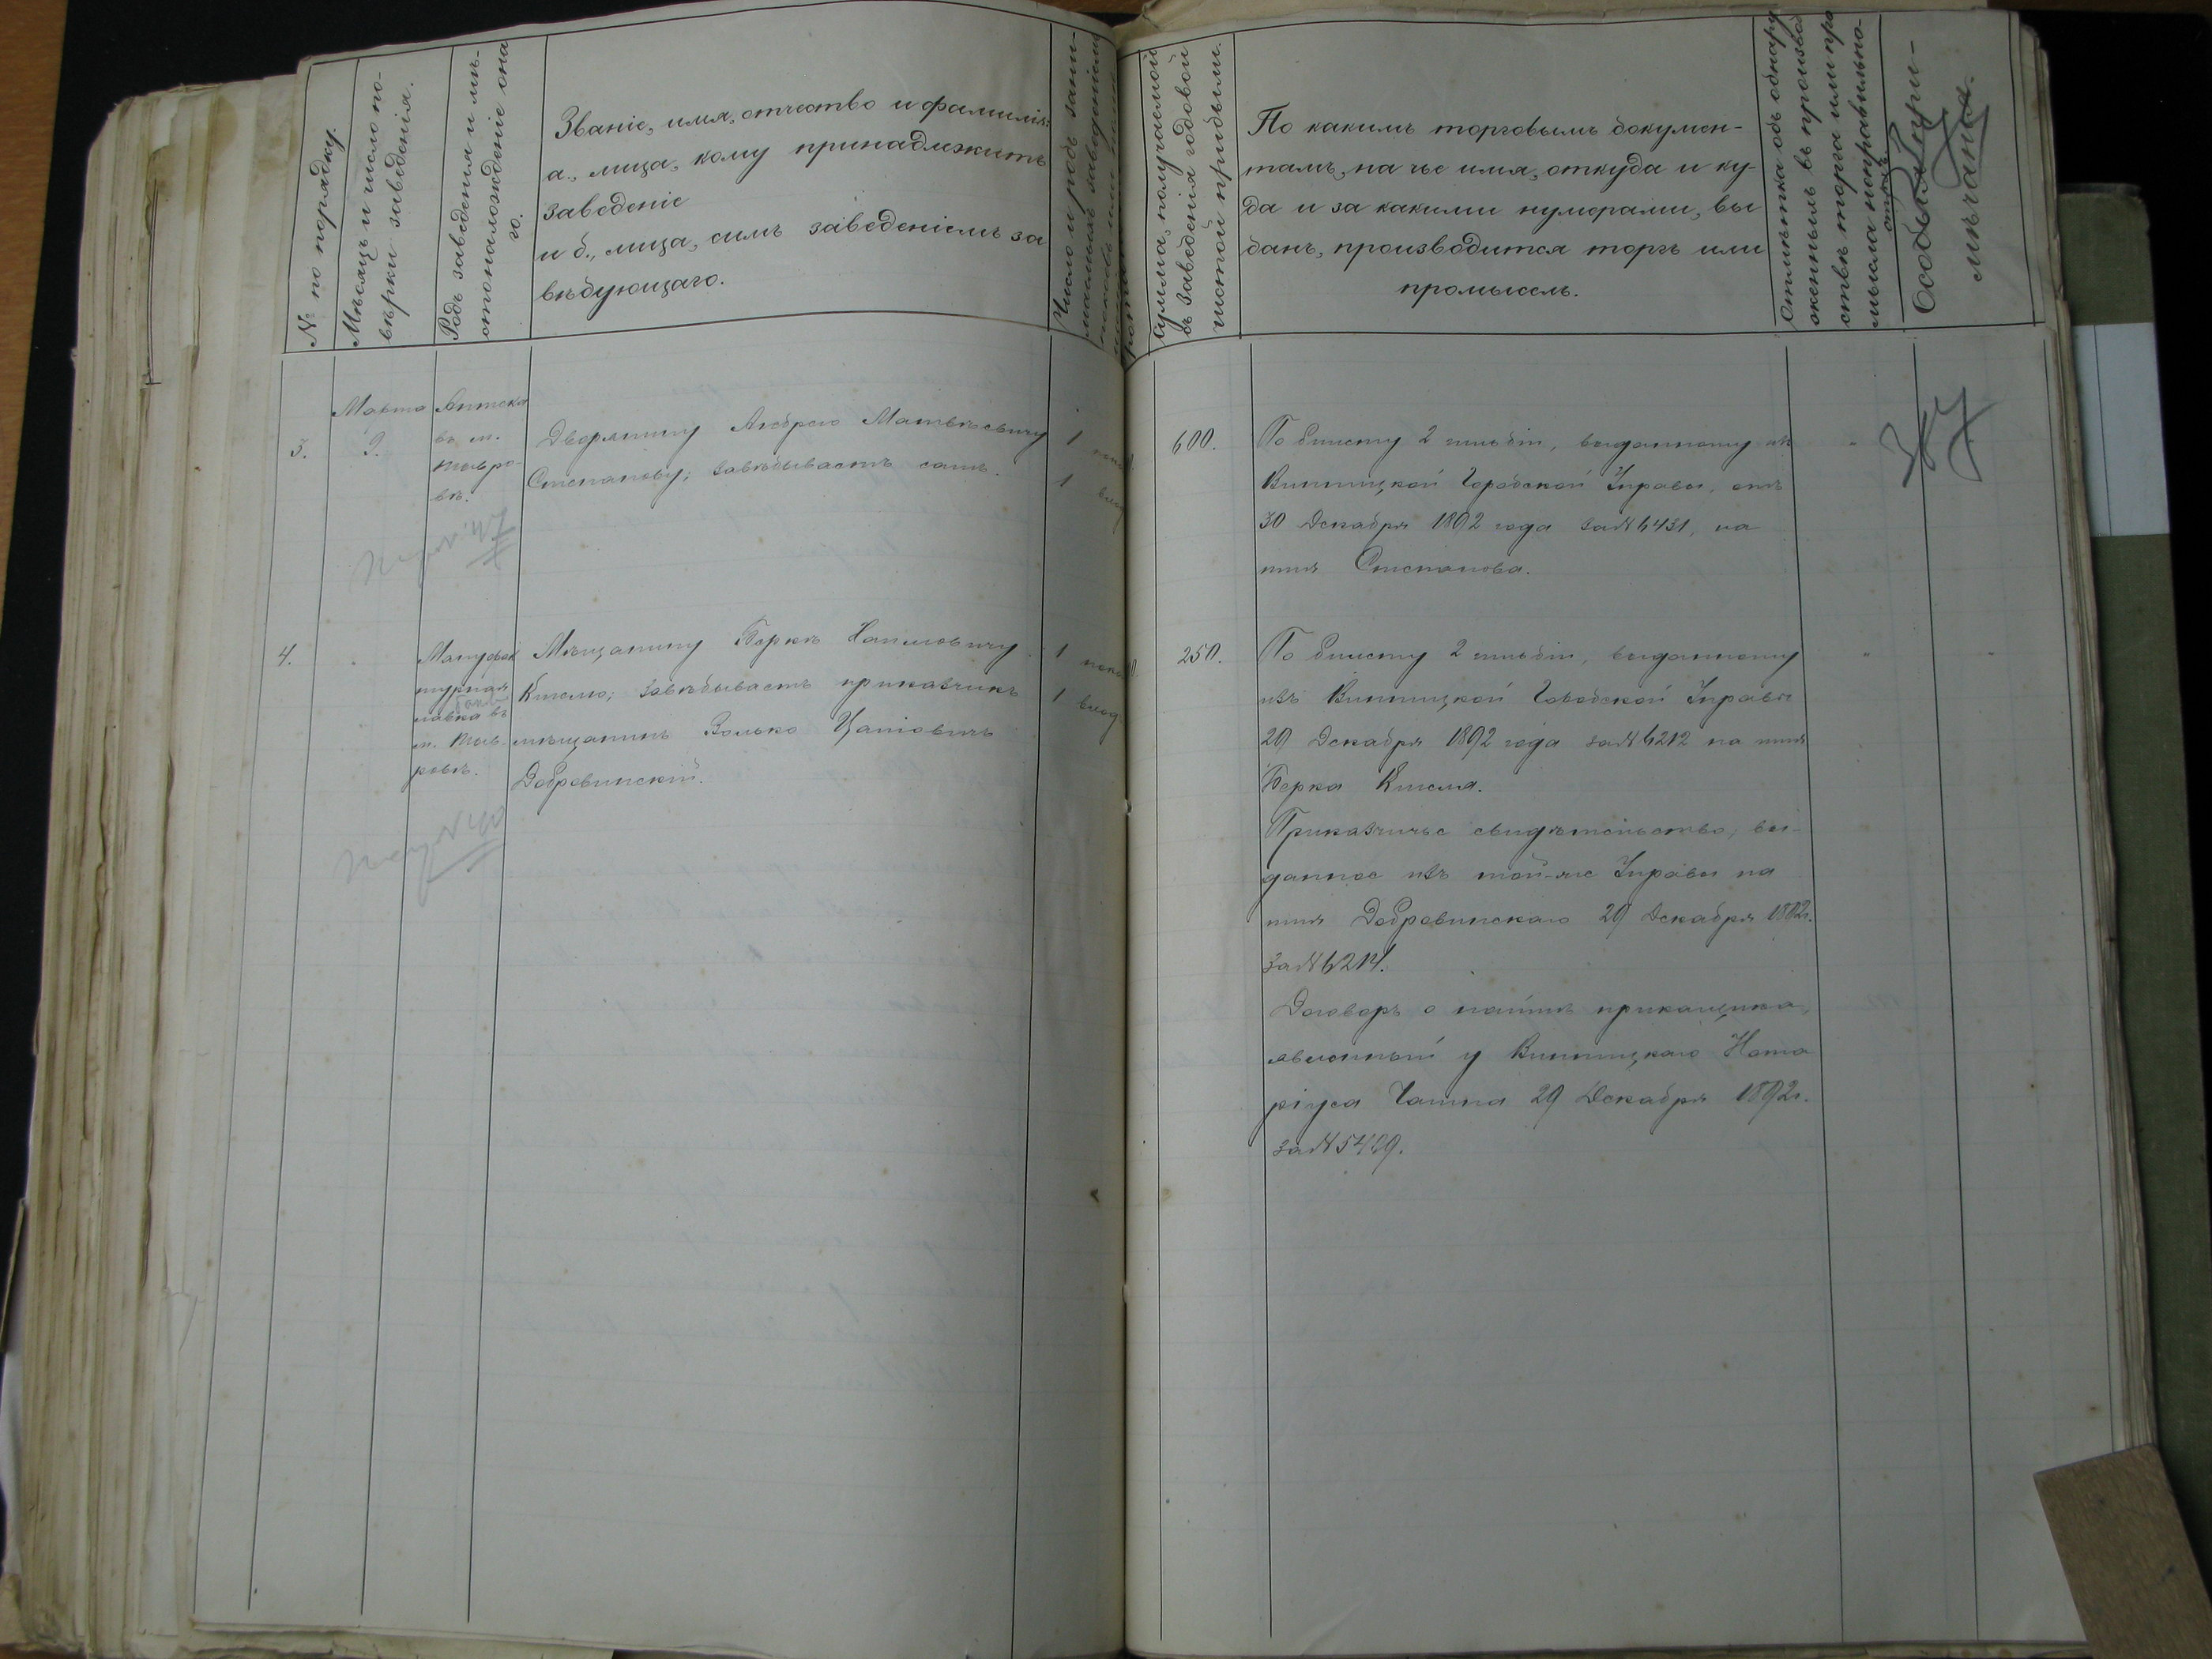 № по порядку
Мѣсяцъ и число по-
вѣрки заведенія.
Родъ заведенія и мѣ-
стонахожденіе она
го.
Званіе, имя, отчество и фамилія:
а., лица, кому принадлежитъ
заведеніе
и б., лица, симъ заведеніемъ за
вѣдующаго.
Число и родъ зани-
маемыхъ заведеніемъ
Сумма, получаемой
въ заведенія годовой
чистой прибыли.
По какимъ торговымъ докумен-
тамъ, на чье имя, откуда и ку-
да и за какими нумерами, вы
данъ, производится торгъ или
промыселъ.
Отмѣтка объ обнару
женныхъ въ производ
ствѣ торга или про
мысла неправильно-
стяхъ.
Особыя при-
мѣчанія.
3.
Марта
9.
Аптека
въ м.
Тывро-
вѣ.
Дворянину Андрею Матвѣевичу
Степанову; завѣдываетъ самъ.
1
1
600.
По билету 2 гильдіи, выданному изъ
Винницкой Городской Управы, отъ
30 Декабря 1892 года за № 6431, на
имя Степанова.
4.
Мануфак
турная
лавка въ
м. Тыв-
ровѣ.
Мѣщанину Беркѣ Хаимовичу
Киселю; завѣдываетъ приказчикъ
мѣщанинъ Волько
Добровинскій.
1
1 вход.
250.
По билету 2 гильдіи, выданному
изъ Винницкой Городской Управы
29 Декабря 1892 года за № 6212 на имя
Берка Киселя.
Приказчичье свидѣтельство, вы-
данное изъ той-же Управы на
имя Добровинскаго 29 Декабря 1892г.
за № 6214.
Договоръ о наймѣ прикащика,
явленный у Винницкаго Нота
ріуса 29 Декабря 1892г.
за № 5429.